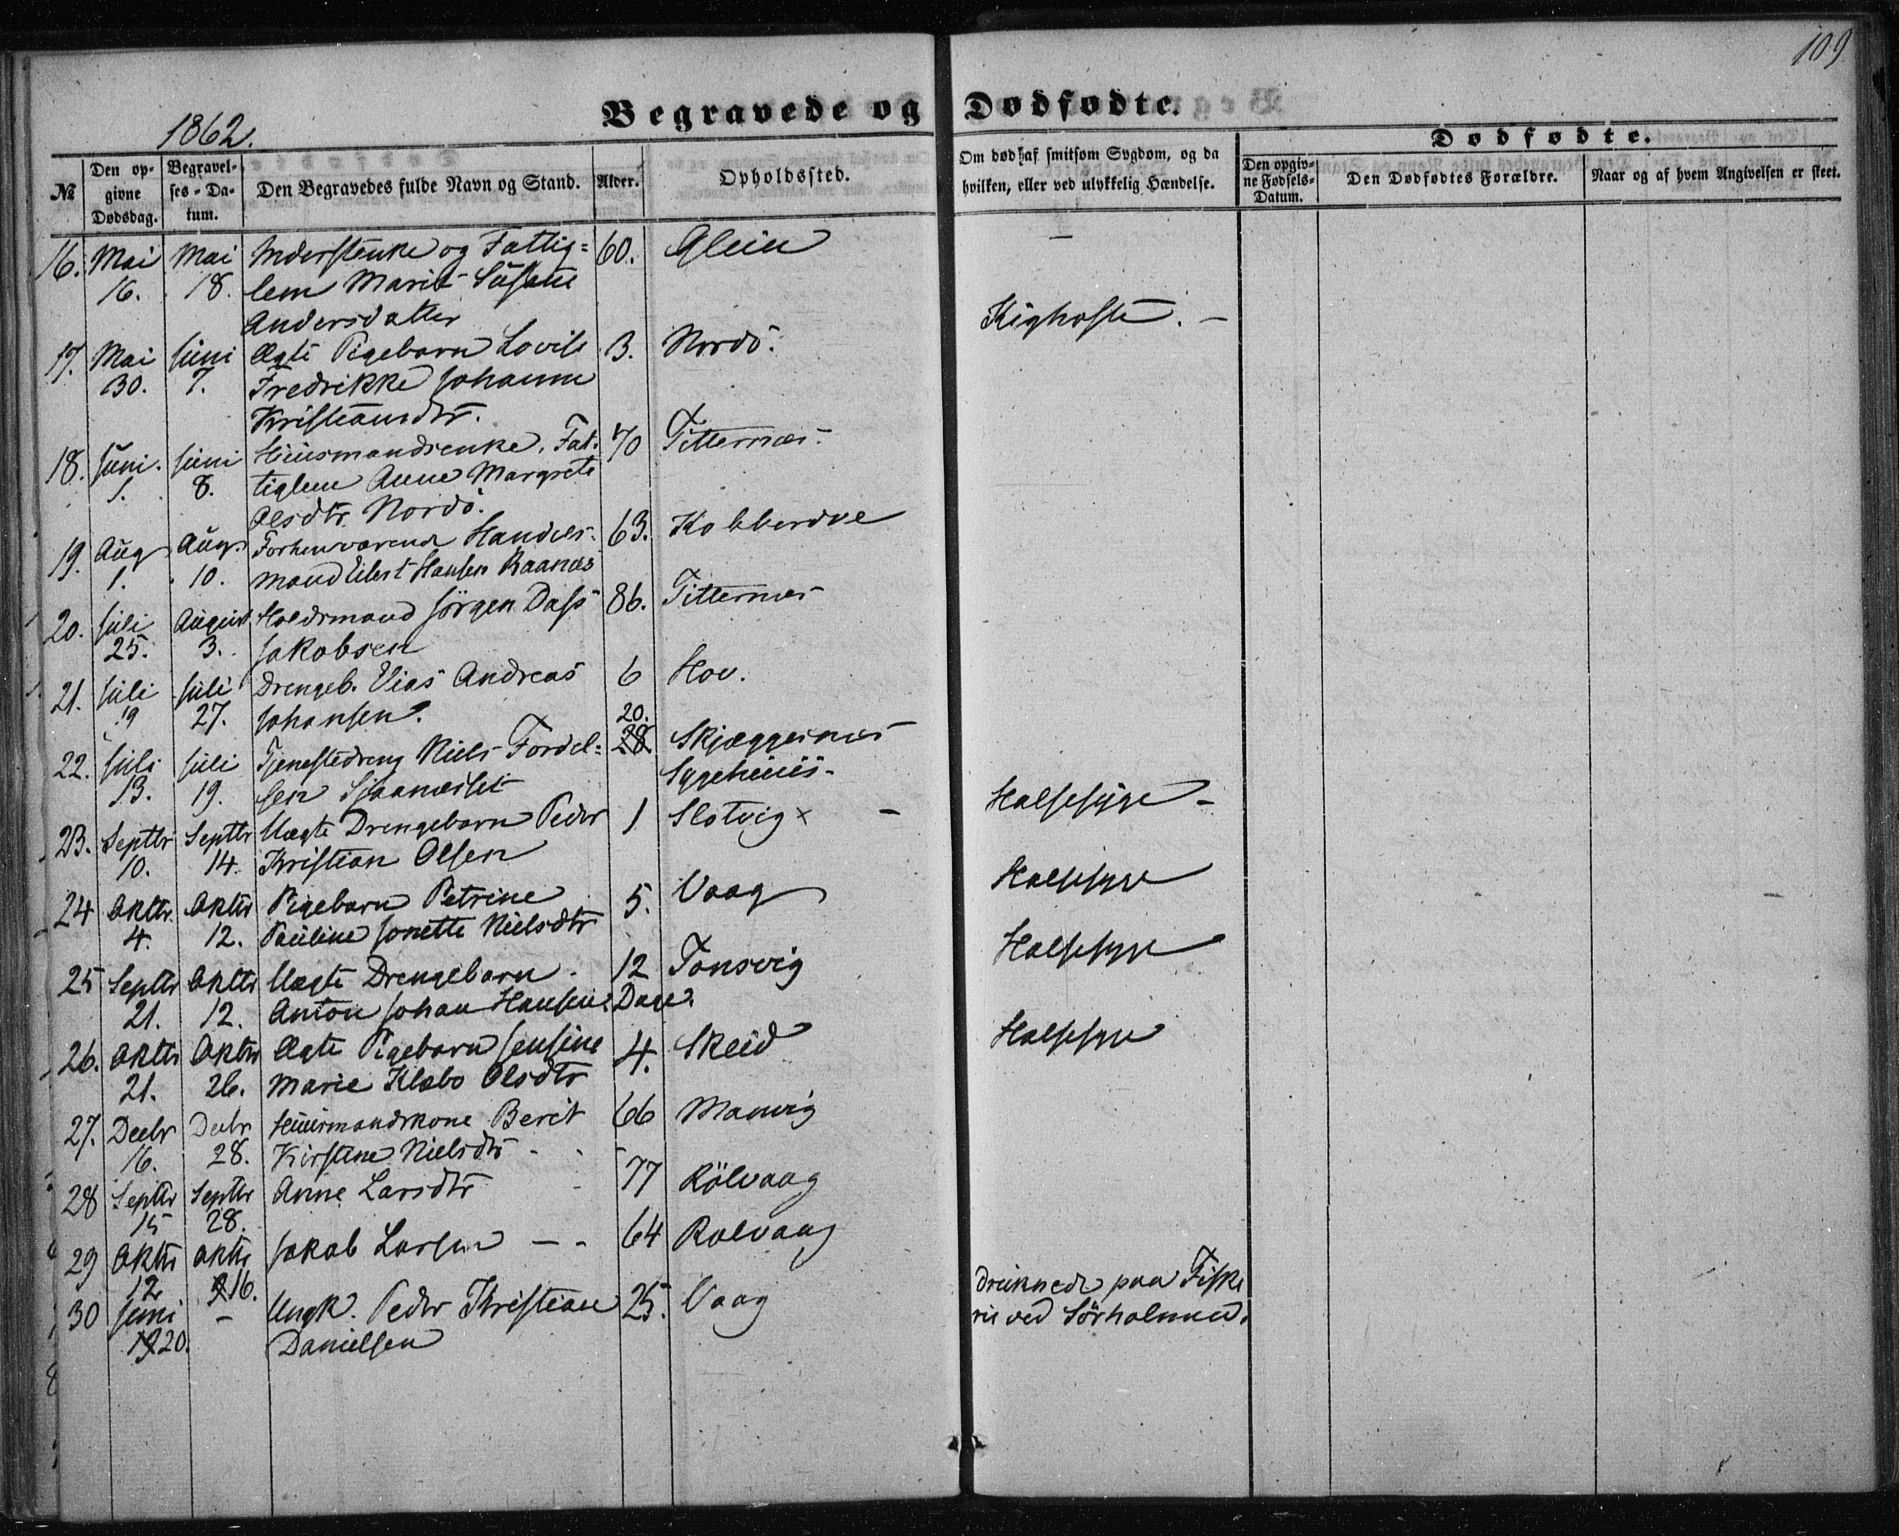 109
Begravede og Dødfødte.
1862.
Dødfødte.
№
Den opgivne Dødsdag.
Begravelses-Datum.
Den Begravedes fulde Navn og Stand.
Alder.
Opholdssted.
Om død af smitsom Sygdom, og da hvilken, eller ved ulykkelig Hændelse.
Den opgivne Fødsels-Datum.
Den Dødfødtes Forældre.
Naar og af hvem Angivelsen er skeet.
16. Mai Mai Inderstenke og Fattig= 60. Glein —
16. 18. lem Marit Susane
Andersdatter
17. Mai Juni Ægte Pigebarn Lovise 3. Nordö. Kighoste. —
30. 7. Fredrikke Johanne
Kristiansdtr.
18. Juni. Juni Huusmandsenke, Fat- 70 Titternæs.
1. 8. tiglem Anne Margrete
Olsdtr. Nordö.
19. Aug Aug. Forhenværend Handels- 63. Kobberdve
1. 10. mand Eilert Hansen Raanæs
20. Juli August Holdsmand Jörgen Dass 86. Titternæs
25. 3. Jakobsen
21. Juli Juli Drengeb. Elias Andreas 6 Hov.
19 27. Johansen. 20.
22. Juli Juli Tjenestedreng Niels Fordel= 28 Skjæggesnæs
13. 19. sen Sygehuus.
23. Septbr Septbr Uægte Drengebarn Peder 1 Slotvig x — Halssyge —
10. 14. Kristian Olsen
24 Oktbr. Oktbr Pigebarn Petrine 5. Vaag Halssyge
4. 12. Pauline Jonette Nielsdtr
25 Septbr Oktbr Uægte Drengebarn. 12 Tonsvig Halssyge
21. 12. Anton Johan Hansen. Dage.
26. Oktbr Oktbr Ægte Pigebarn Jensine 4. Skeid Halssyge
21. 26. Marie Klæbo Olsdtr
27. Decbr Decbr Huusmandskone Berit 66 Manvig
16. 28. Kirstine Nielsdtr - -
28 Septbr Septbr Anne Larsdtr - 77 Rölvaag
15 28.
29 Oktbr Oktbr Jakob Larsen — - 64 Rolvaag
12 16.
30 Juni — Ungk. Peder Kristian 25. Vaag Druknede paa Fiske
20. Danielsen rie ved Sörholmen.